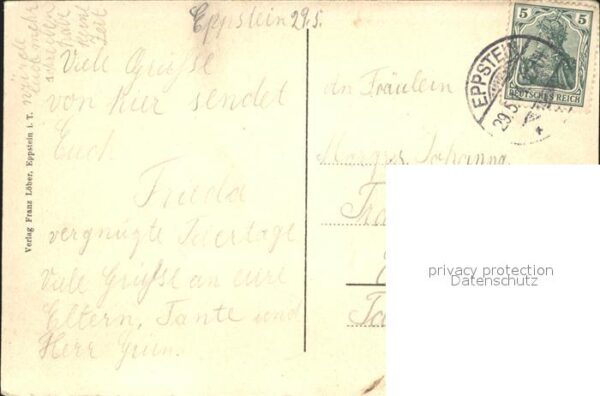 Eppstein 29.5.
Viele Grüsse
von hier sendet
Euch
Frieda
vergnügte Feiertage
Viele Grüsse an eure
Eltern, Tante und
Herr Grün.
Euch mehr
habe
keine
Zeit
Verlag Franz Löber, Eppstein i. T.
An Fräulein
Johanna
5 5
DEUTSCHES REICH
EPPSTEIN
29.5
privacy protection
Datenschutz